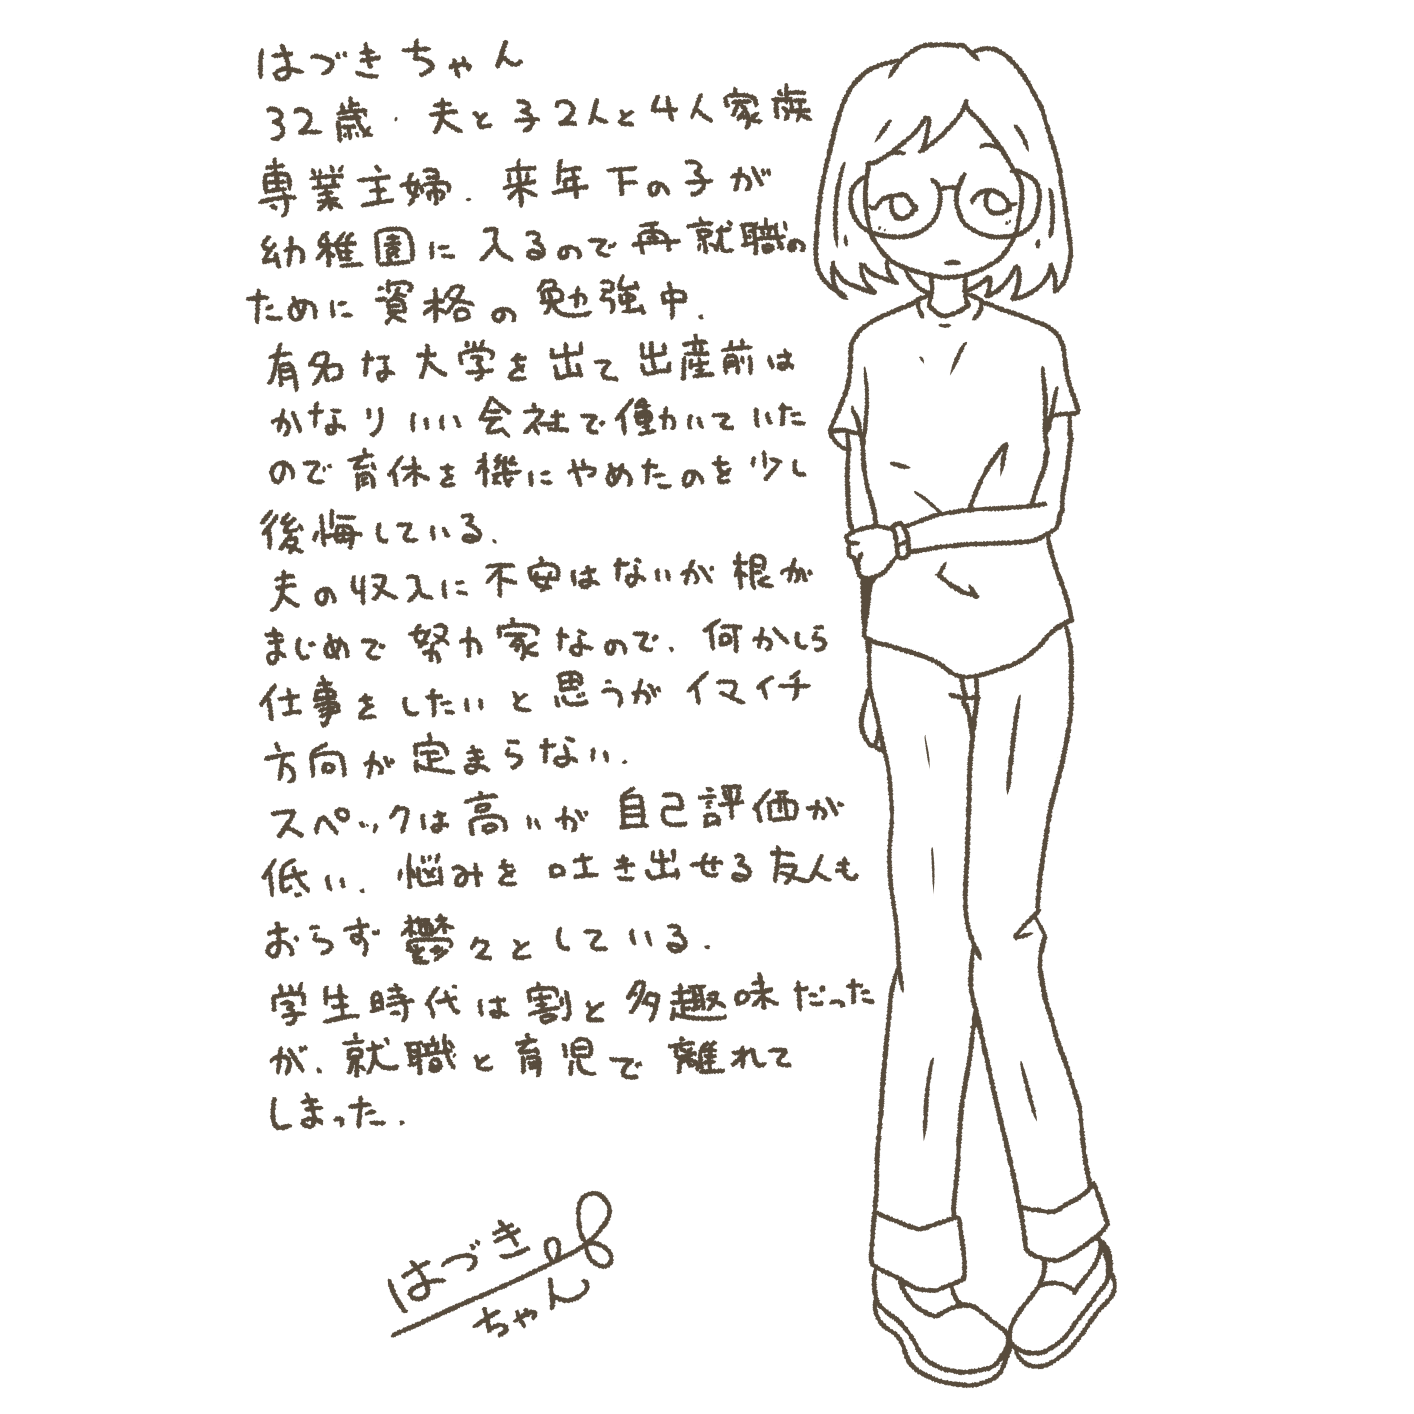 はづきちゃん
32歳．夫と子2人と4人家族
専業主婦．来年下の子が
幼稚園に入るので再就職の
ために資格の勉強中．
有名な大学を出て出産前は
かなりいい会社で働いていた
ので育休を機にやめたのを少し
後悔している．
夫の収入に不安はないが根が
まじめで努力家なので．何かしら
仕事をしたいと思うがイマイチ
方向が定まらない．
スペックは高いが自己評価が
低い．悩みを吐き出せる友人も
おらず鬱々としている．
学生時代は割と多趣味だった
が．就職と育児で離れて
しまった．
はづき
ちゃん